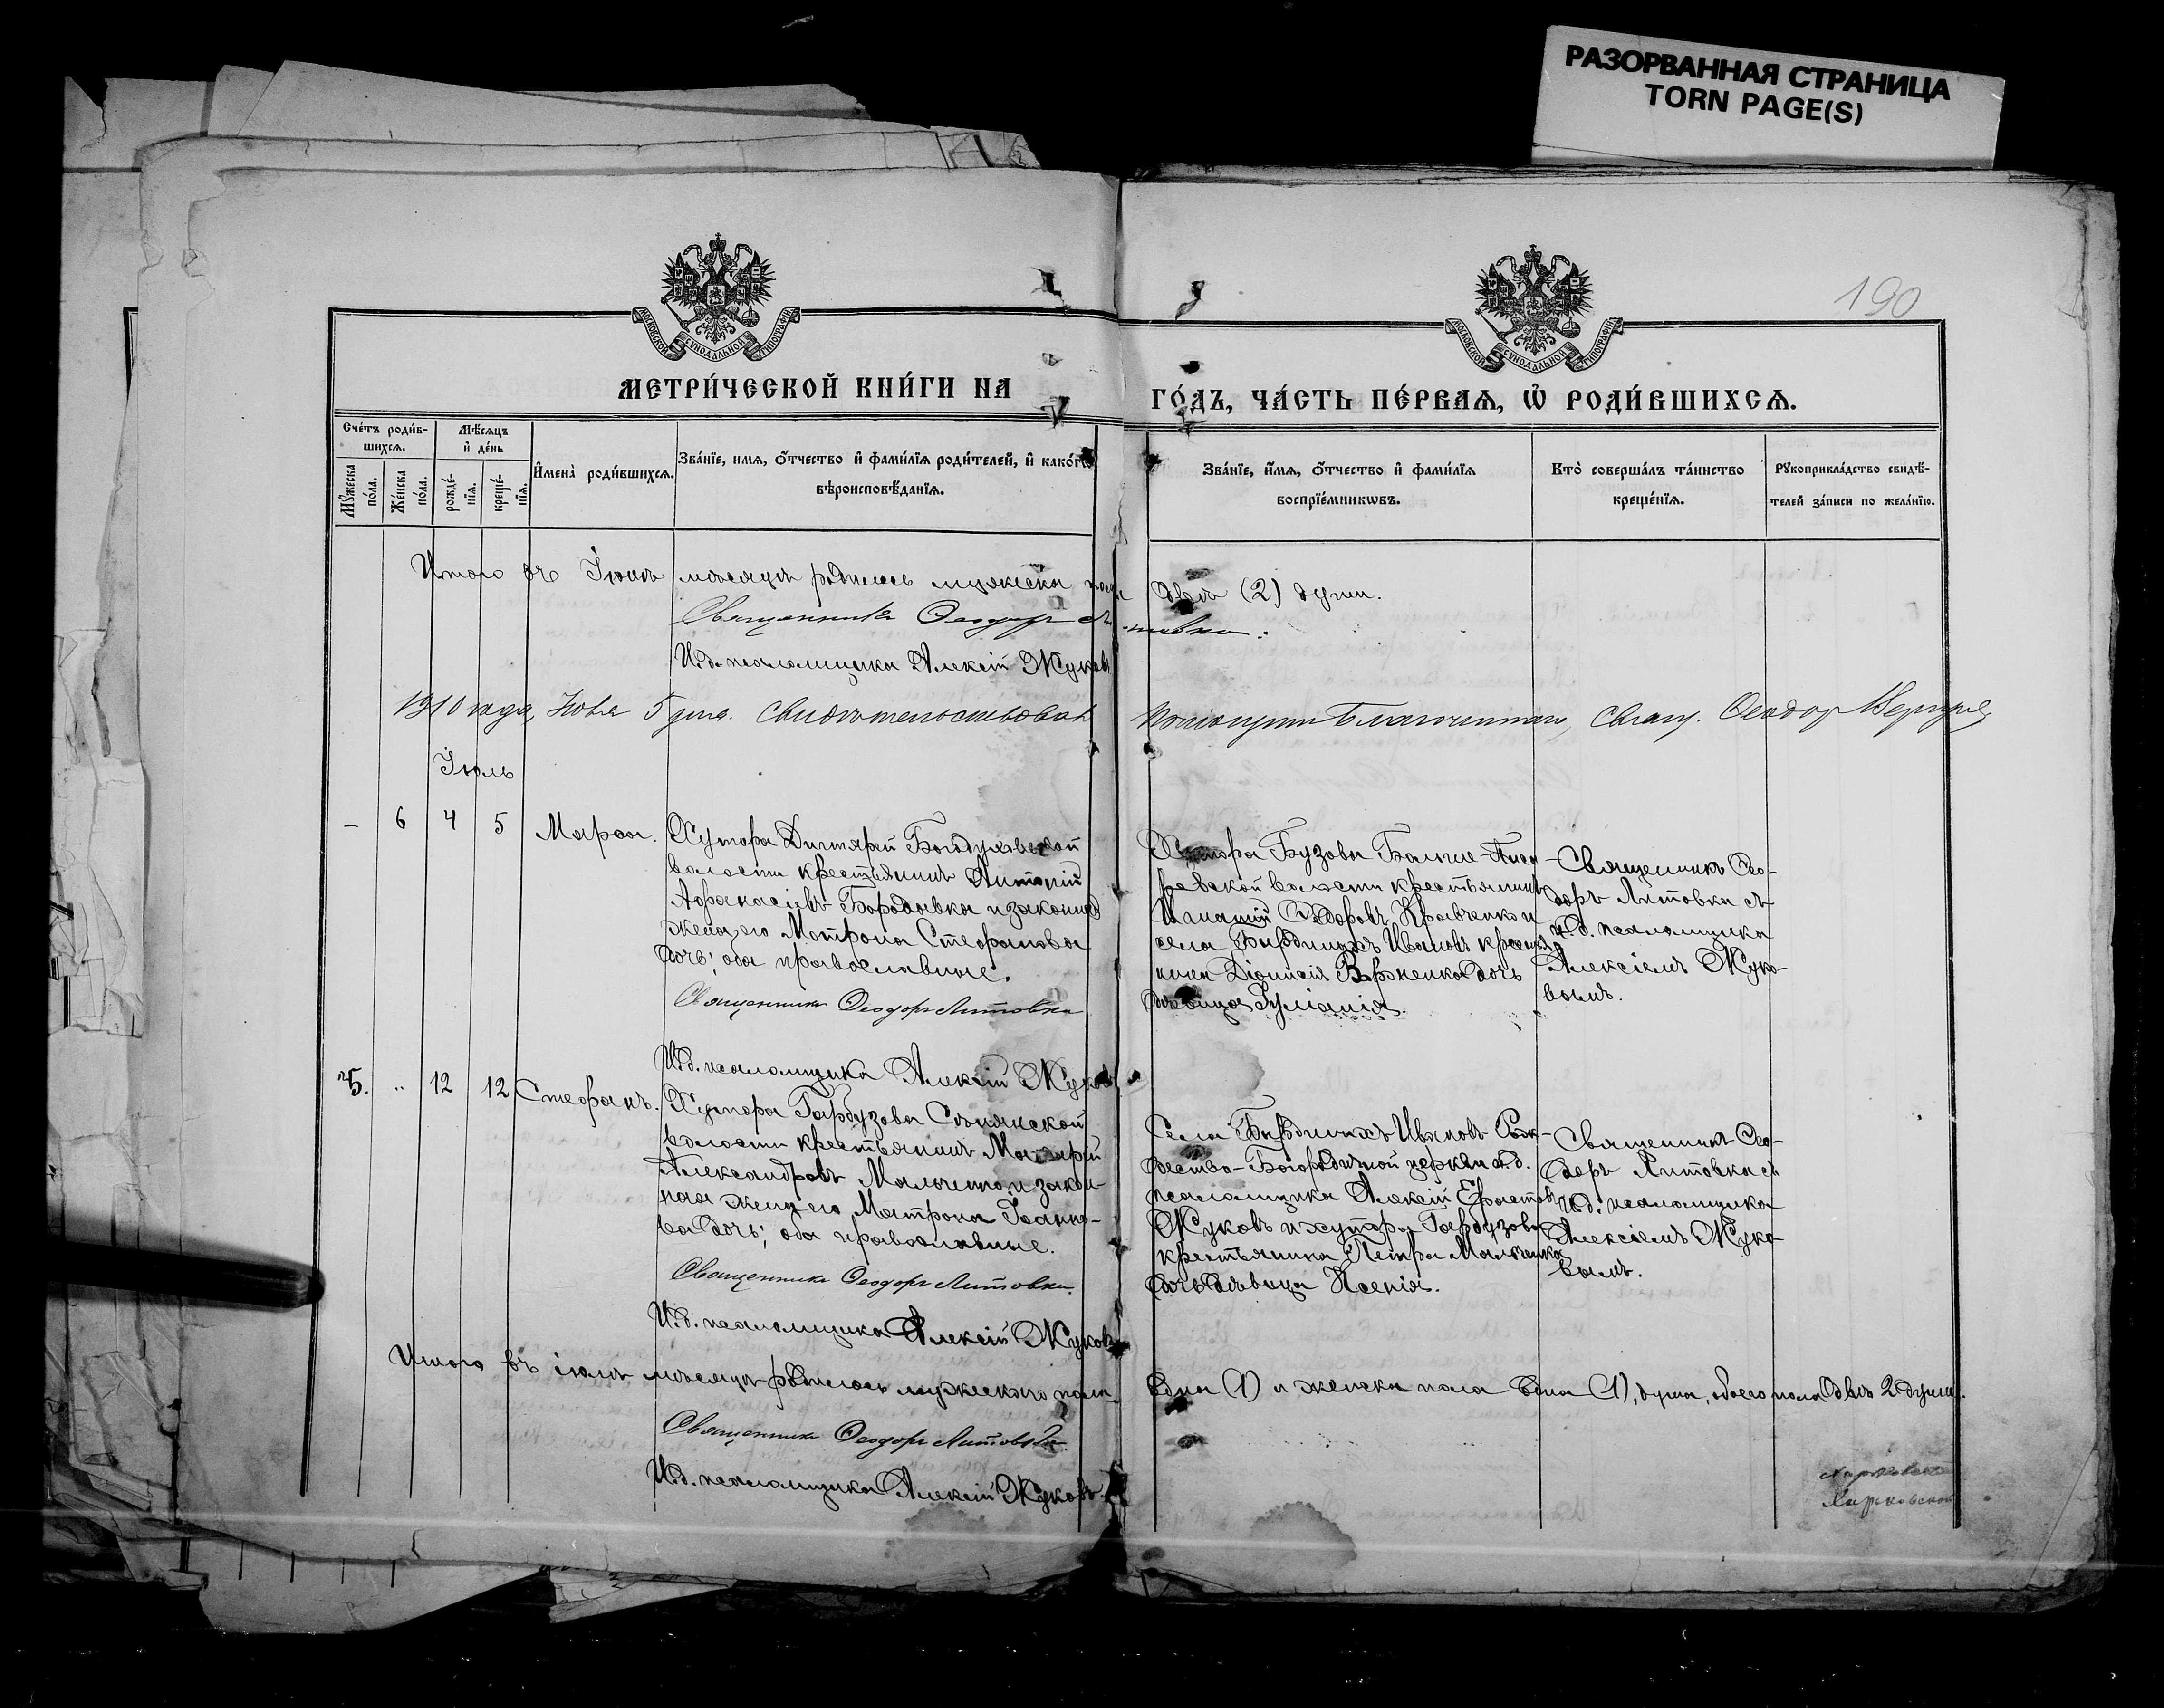 РАЗОРВАННАЯ СТРАНИЦА
TORN PAGE(S)
190
МОСКОВСКОЙ СѴНОДАЛЬНОЙ ТИПОГРАФІИ
МОСКОВСКОЙ СѴНОДАЛЬНОЙ ТИПОГРАФІИ
МЕТРИ́ЧЕСКОЙ КНИ́ГИ НА
ГО́ДЪ, ЧА́СТЬ ПЕ́РВАЯ, Ѡ҆ РОДИ́ВШИХСЯ.
Сче́тъ роди́в-
шихся.
Мꙋ́жеска по́ла.
Же́нска по́ла.
Мѣ́сяцъ
и҆ де́нь
рожде́-нїя.
креще́-нїя.
И҆мена̀ роди́вшихся.
Зва́нїе, имя, ѻ҆́тчество и҆ фами́лїя роди́телей, и҆ како́гѡ
вѣроисповѣ́данїя.
Зва́нїе, и҆́мя, ѻ҆́тчество и҆ фами́лїя
воспрїе́мникѡвъ.
Кто̀ соверша́лъ та́инство
креще́нїя.
Рꙋкоприкла́дство свидѣ́-
телей за́писи по жела́нїю.
Итого въ Іюнѣ мѣсяцѣ родилось мужеска пола двѣ (2) души.
Священникъ Ѳеодоръ Литовка.
И.д. псаломщика Алексій Жуковъ
1910 года, Ноя 5 дня. Свидѣтельствовалъ Благочиннаго, Свящ. Ѳеодор
Іюль
– 6 4 5 Марѳа.
Хутора Дигтярей Богодуховской
волости крестьянинъ Антоній
Аѳанасіевъ Бородавка и законная
жена его Матрона Стефанова
дочь; оба православные.
Священникъ Ѳеодоръ Литовка
И.д. псаломщика Алексій Жуковъ
Хутора Бузова
ревской волости крестьянинъ
Игнатій Ѳедоровъ Кравченко и
села Бирдиныхъ Ивановъ
Діонисія дочь
дѣвица Іуліанія.
Священникъ Ѳео-
доръ Литовка съ
и.д. псаломщика
Алексіемъ Жуко-
вымъ.
5. „ 12 12 Стефанъ.
Хутора Гарбузова
волости крестьянинъ Макарій
Александровъ Мальченко, и закон-
ная жена его Матрона Іоанно-
ва дочь; оба православные.
Священникъ Ѳеодоръ Литовка.
И.д. псаломщика Алексій Жуковъ
Села Бирдиныхъ Ивановъ Рож-
дество-Богородичной церкви и.д.
псаломщика Алексій Ерастовъ
Жуковъ и хутора Гарбузова
крестьянина Петра Мальченка
дочь дѣвица Ксенія.
Священникъ Ѳео-
доръ Литовка съ
и.д. псаломщика
Алексіемъ Жуко-
вымъ.
Итого въ іюлѣ мѣсяцѣ родилось мужескаго пола одна (1) и женска пола одна (1), душа, обоего пола двѣ 2 души.
Священникъ Ѳеодоръ Литовка
И.д. псаломщика Алексій Жуковъ.
Харьковской